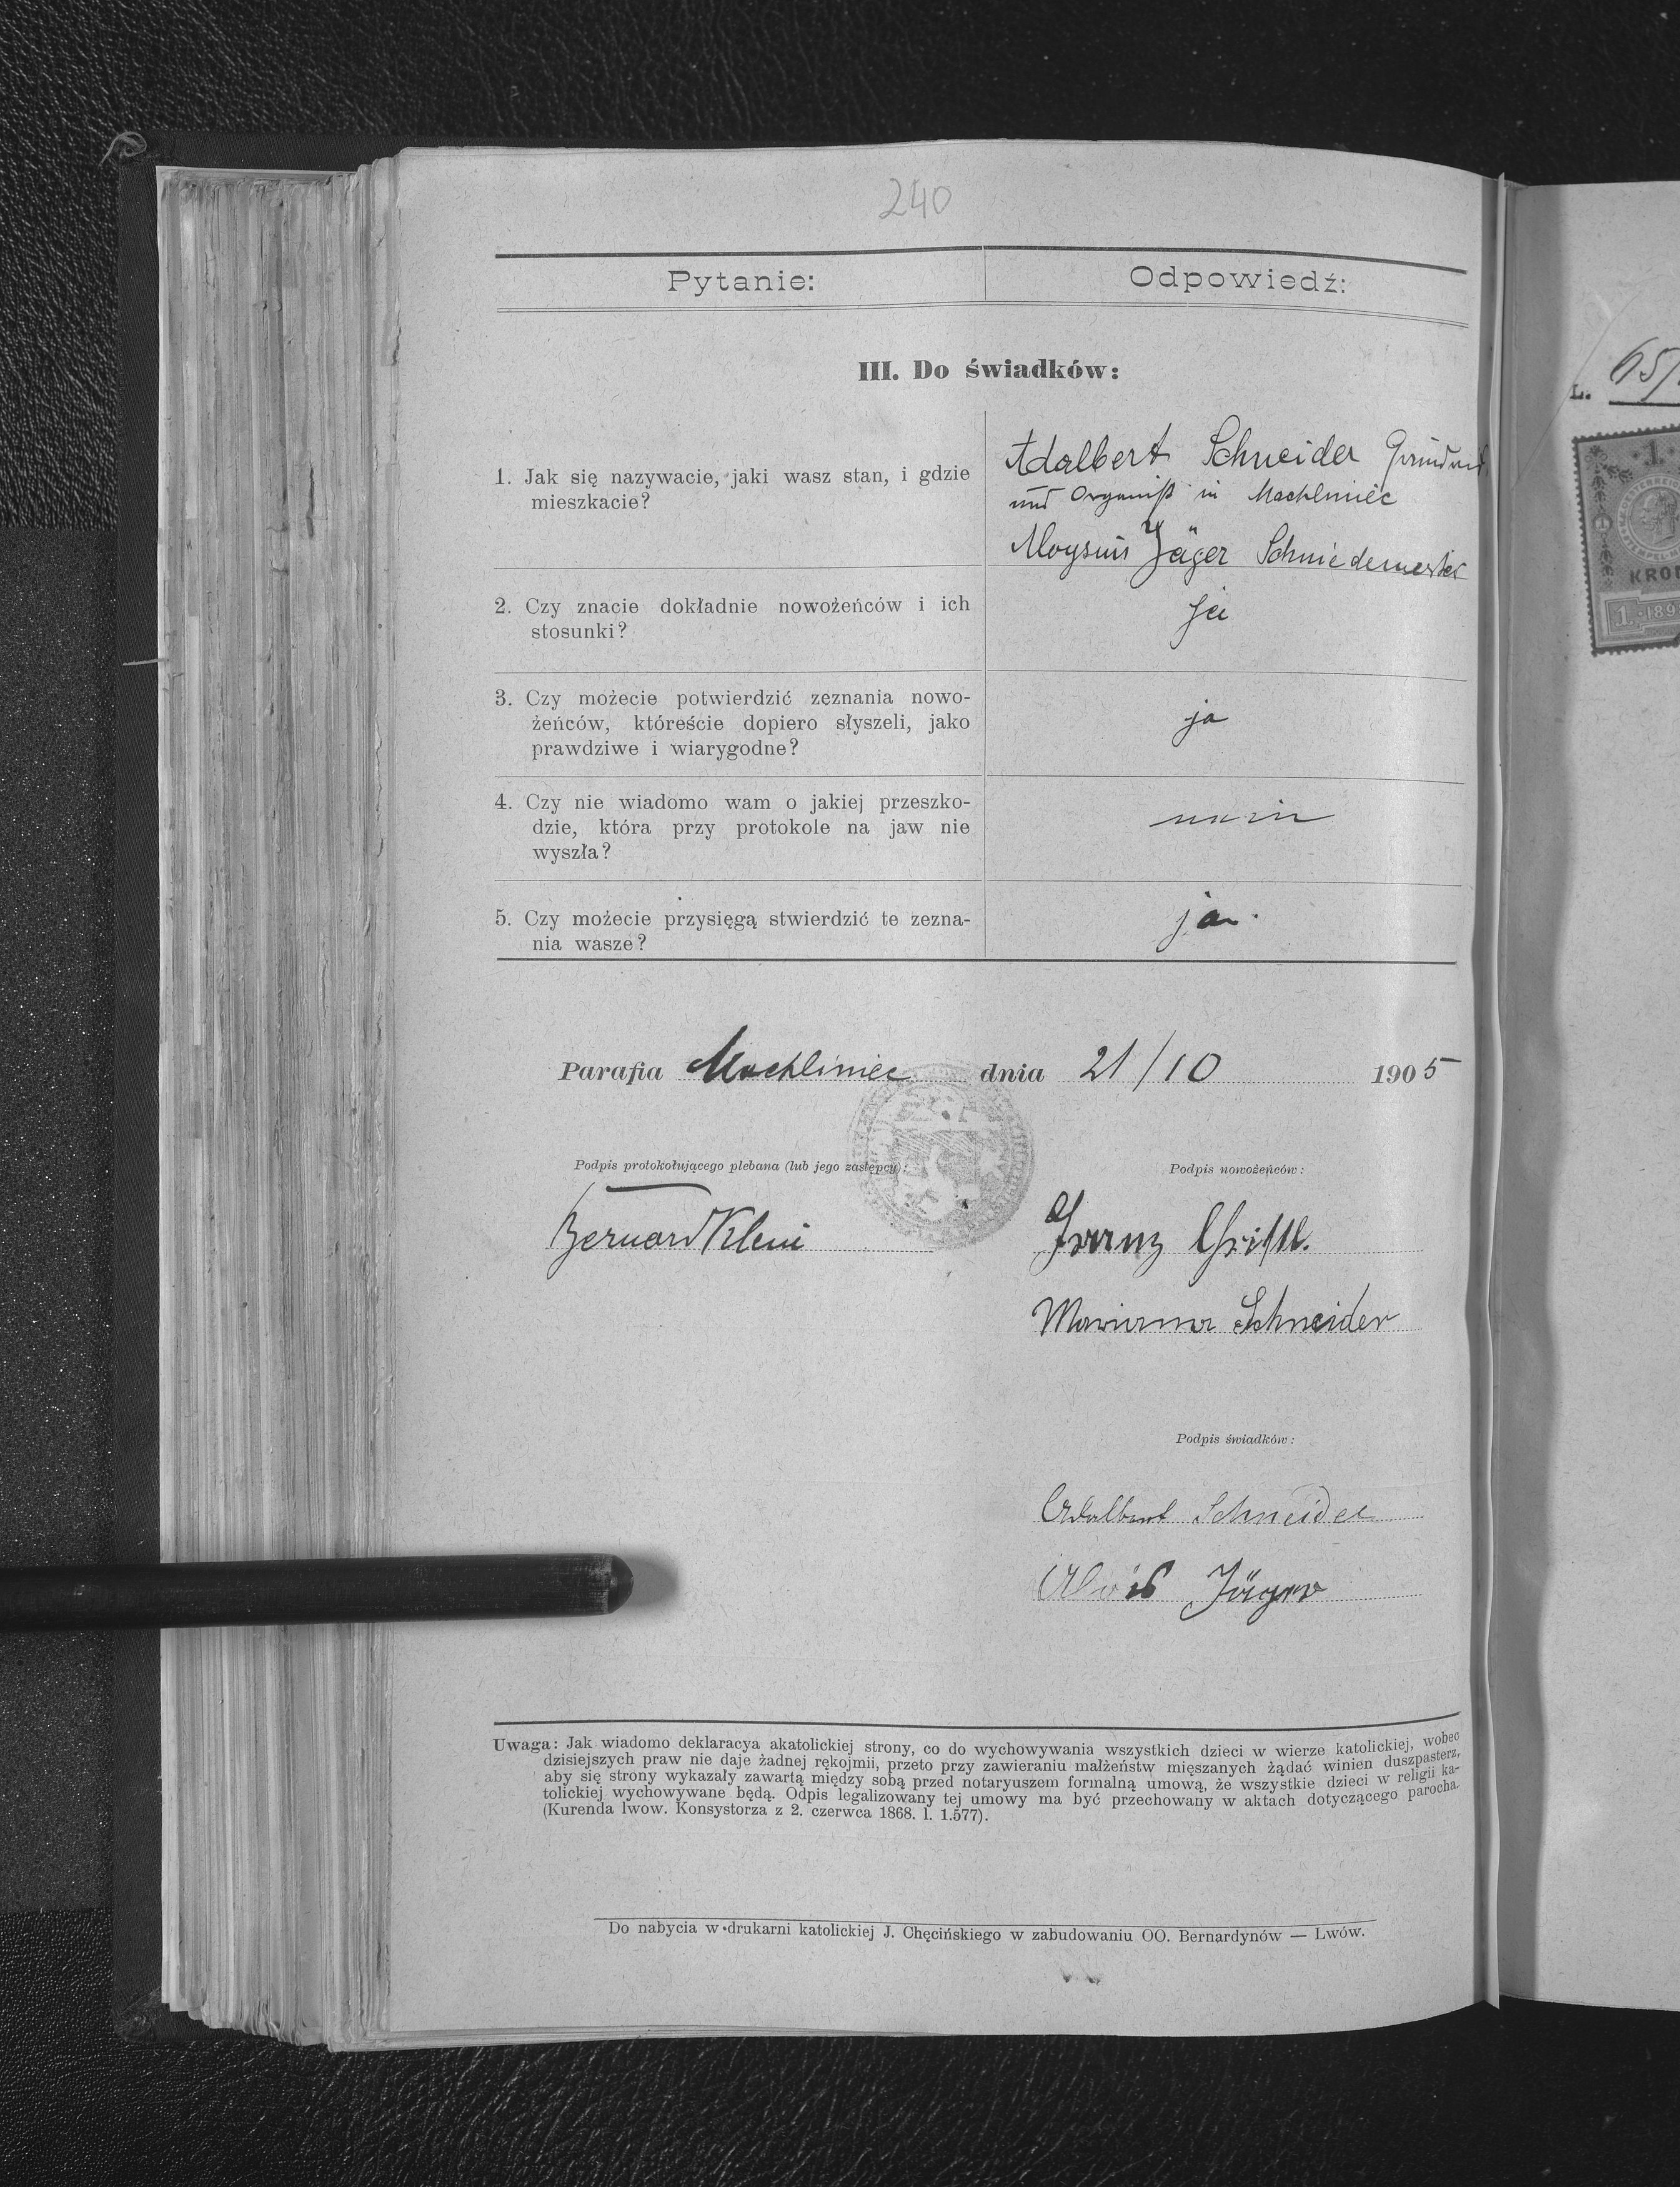 240
Pytanie: Odpowiedź:
III. Do świadków:
1. Jak się nazywacie, jaki wasz stan, i gdzie
mieszkacie?
Adalbert Schneider
und Organist in Machliniec
Aloysius Jäger Schmiedemeister
2. Czy znacie dokładnie nowożeńców i ich
stosunki?
ja
3. Czy możecie potwierdzić zeznania nowo-
żeńców, któreście dopiero słyszeli, jako
prawdziwe i wiarygodne?
ja
4. Czy nie wiadomo wam o jakiej przeszko-
dzie, która przy protokole na jaw nie
wyszła?
nein
5. Czy możecie przysięgą stwierdzić te zezna-
nia wasze?
ja.
Parafia Machliniec dnia 21/10 1905
Podpis protokołującego plebana (lub jego zastępcy):
Podpis nowożeńców:
Bernard Klein
Franz Christl.
Marianna Schneider
Podpis świadków:
Adalbert Schneider
Alois Jäger
Uwaga: Jak wiadomo deklaracya akatolickiej strony, co do wychowywania wszystkich dzieci w wierze katolickiej, wobec
dzisiejszych praw nie daje żadnej rękojmii, przeto przy zawieraniu małżeństw mięszanych żądać winien duszpasterz,
aby się strony wykazały zawartą między sobą przed notaryuszem formalną umową, że wszystkie dzieci w religii ka-
tolickiej wychowywane będą. Odpis legalizowany tej umowy ma być przechowany w aktach dotyczącego parocha.
(Kurenda lwow. Konsystorza z 2. czerwca 1868. l. 1.577).
Do nabycia w drukarni katolickiej J. Chęcińskiego w zabudowaniu OO. Bernardynów — Lwów.
L. 65/
1.
KRON
1. 189